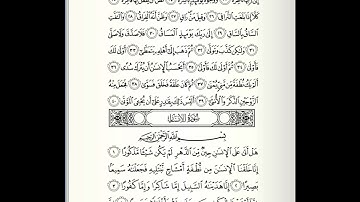 كَلَّا إِذَا بَلَغَتِ ٱلتَّرَاقِيَ ٢٦ وَقِيلَ مَنْ رَاقٍ ٢٧ وَظَنَّ أَنَّهُ ٱلْفِرَاقُ ٢٨ وَٱلْتَفَّتِ
ٱلسَّاقُ بِٱلسَّاقِ ٢٩ إِلَىٰ رَبِّكَ يَوْمَئِذٍ ٱلْمَسَاقُ ٣٠ فَلَا صَدَّقَ وَلَا صَلَّىٰ
٣١ وَلَٰكِن كَذَّبَ وَتَوَلَّىٰ ٣٢ ثُمَّ ذَهَبَ إِلَىٰ أَهْلِهِ يَتَمَطَّىٰ ٣٣ أَوْلَىٰ لَكَ
فَأَوْلَىٰ ٣٤ ثُمَّ أَوْلَىٰ لَكَ فَأَوْلَىٰ ٣٥ أَيَحْسَبُ ٱلْإِنسَٰنُ أَن يُتْرَكَ سُدًى ٣٦
أَلَمْ يَكُ نُطْفَةً مِّن مَّنِيٍّ يُمْنَىٰ ٣٧ ثُمَّ كَانَ عَلَقَةً فَخَلَقَ فَسَوَّىٰ ٣٨ فَجَعَلَ مِنْهُ
ٱلزَّوْجَيْنِ ٱلذَّكَرَ وَٱلْأُنثَىٰ ٣٩ أَلَيْسَ ذَٰلِكَ بِقَٰدِرٍ عَلَىٰ أَن يُحْـِۧيَ ٱلْمَوْتَىٰ ٤٠
سُورَةُ الإِنسَانِ
بِسْمِ ٱللَّهِ ٱلرَّحْمَٰنِ ٱلرَّحِيمِ
هَلْ أَتَىٰ عَلَى ٱلْإِنسَٰنِ حِينٌ مِّنَ ٱلدَّهْرِ لَمْ يَكُن شَيْـًٔا مَّذْكُورًا ١
إِنَّا خَلَقْنَا ٱلْإِنسَٰنَ مِن نُّطْفَةٍ أَمْشَاجٍ نَّبْتَلِيهِ فَجَعَلْنَٰهُ سَمِيعًۢا
بَصِيرًا ٢ إِنَّا هَدَيْنَٰهُ ٱلسَّبِيلَ إِمَّا شَاكِرًا وَإِمَّا كَفُورًا ٣